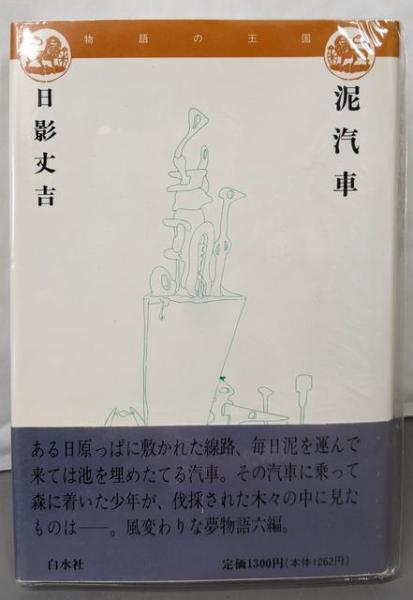 物語の王国
泥汽車
日影丈吉
ある日原っぱに敷かれた線路、毎日泥を運んで
来ては池を埋めたてる汽車。その汽車に乗って
森に着いた少年が、伐採された木々の中に見た
ものは——。風変わりな夢物語六編。
白水社
定価1300円(本体1262円)